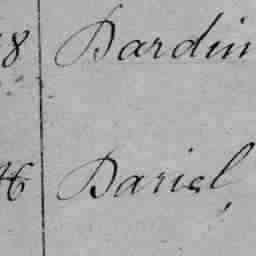 8 Dardin
46 Dariel,